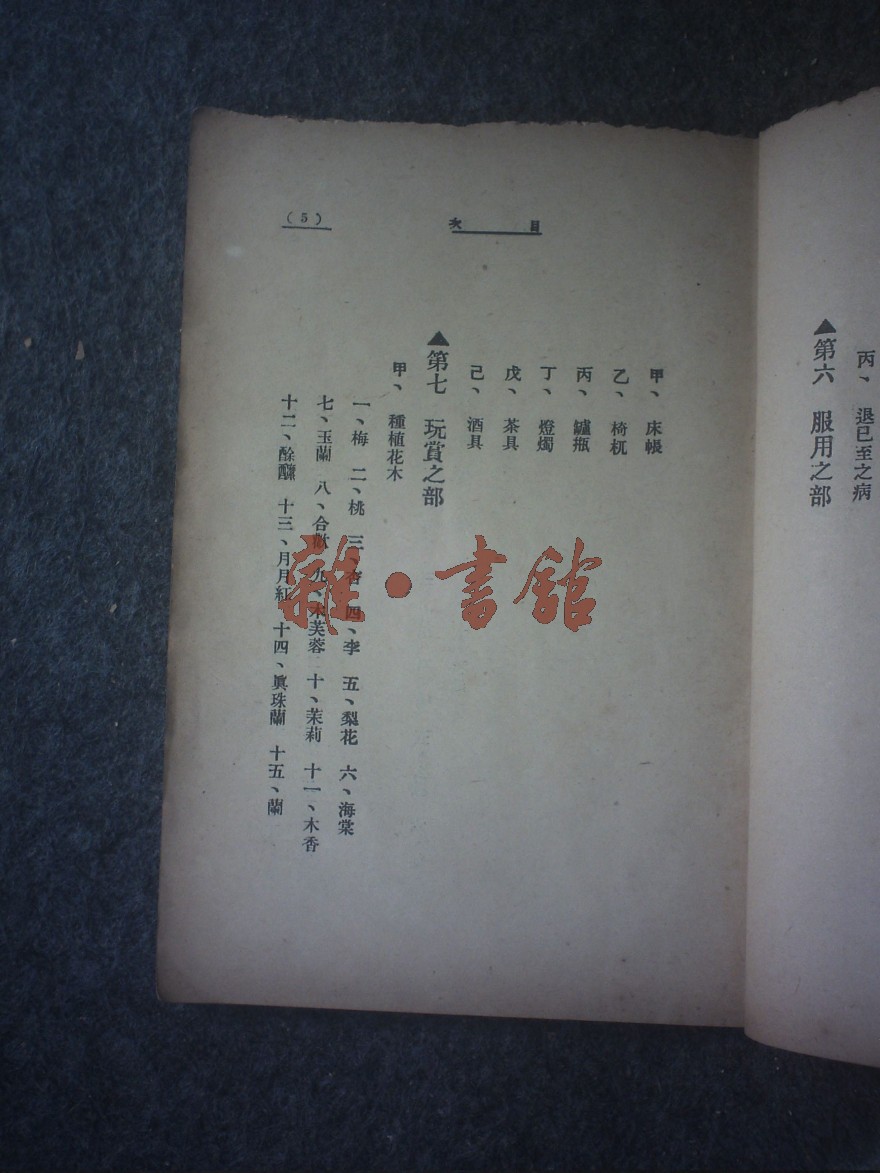 丙、退已至之病
▲第六 服用之部
目次
(5)
甲、床帳
乙、椅杌
丙、罏瓶
丁、燈燭
戊、茶具
己、酒具
▲第七 玩賞之部
甲、種植花木
一、梅 二、桃 三、杏 四、李 五、梨花 六、海棠
七、玉蘭 八、合歡 九、木芙蓉 十、茉莉 十一、木香
十二、酴醿 十三、月月紅 十四、眞珠蘭 十五、蘭
雜·書館